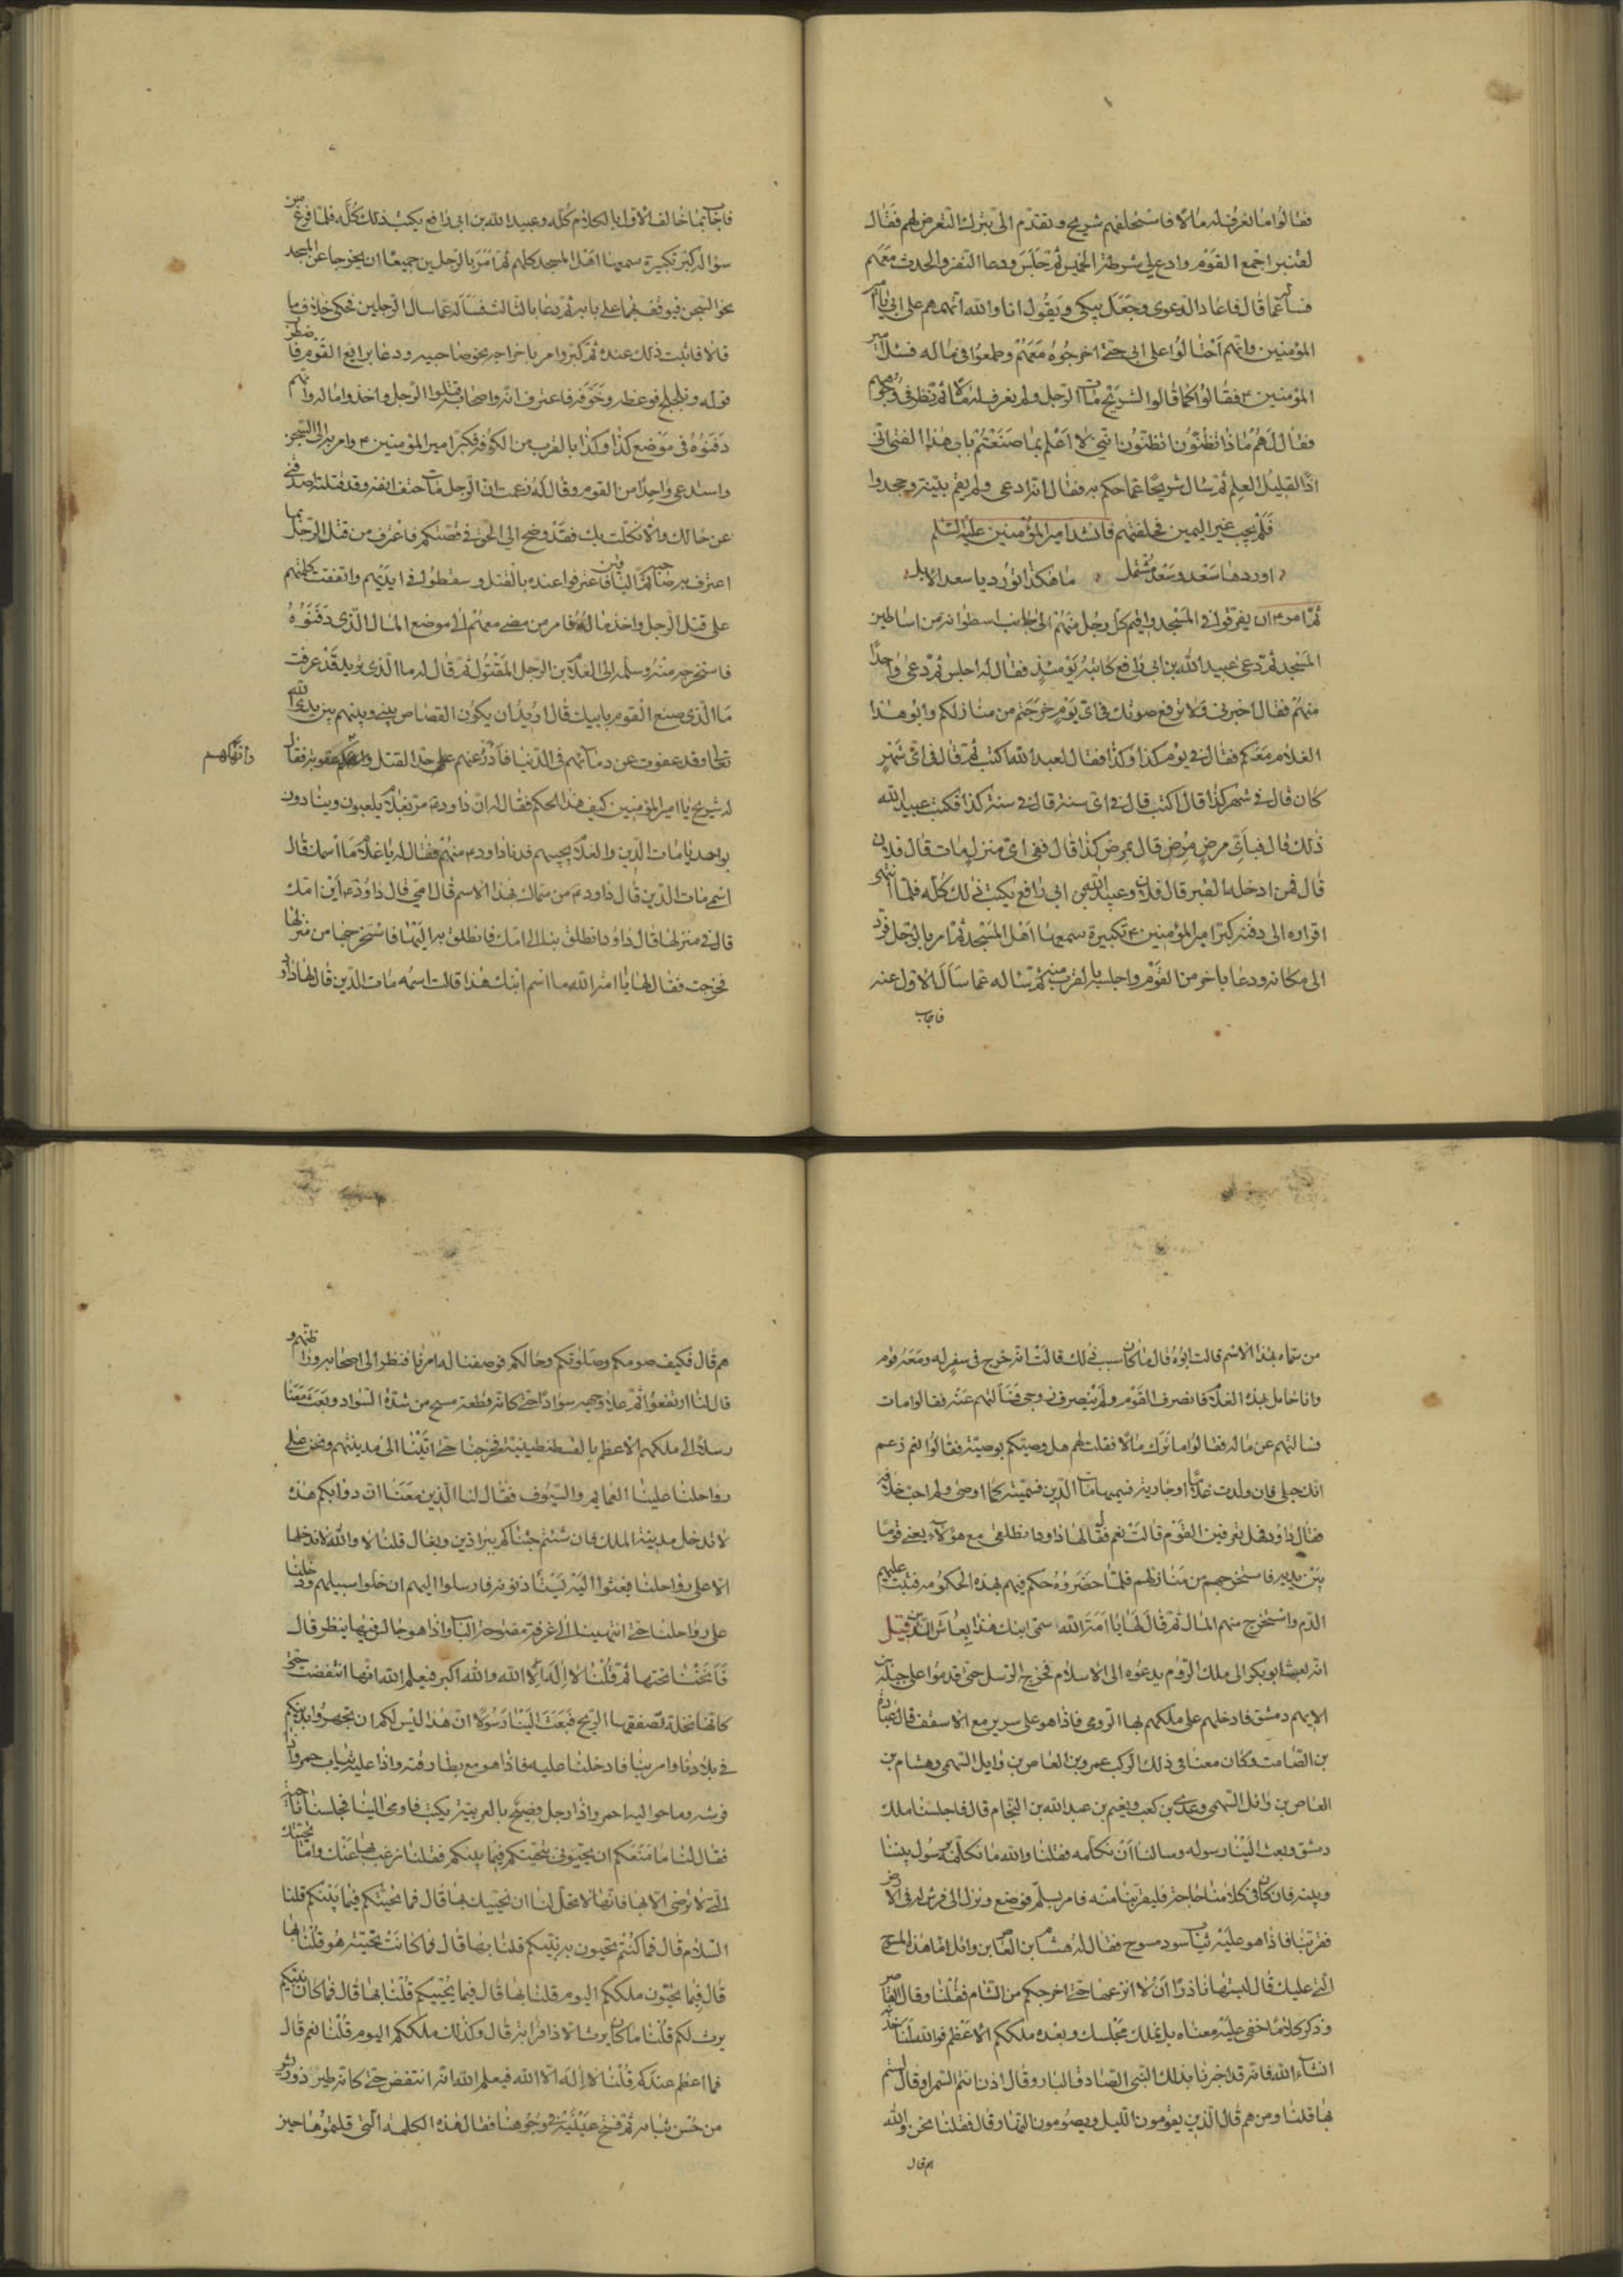 فقالوا ما نعرف له مالا فاستحلفهم شريح وتقدم الى بترك التعرض لهم فقال
لقنبر اجمع القوم وادع لي شرطة الخميس ثم جلس ودعا النفر والحدث معهم
فسأله عما قال فاعاد الدعوى وجعل يبكي ويقول انا والله اتهمهم على ابي يا امير
المؤمنين وانهم احتالوا على ابي حتى اخرجوه معهم وطمعوا في ماله فسئل امير
المؤمنين ع فقالوا كما قالوا لشريح مات الرجل ولم نعرف له مالا ثم نظر في وجوههم
فقال لهم ماذا تظنون اتظنون انني لا اعلم بما صنعتم باب هذا الفتى اني
اذًا لقليل العلم ثم سال شريحا عما حكم به فقال انه ادعى ولم يقم بينة وجحدوا
فلم يجب غير اليمين فحلفتهم فانشد امير المؤمنين عليه السلم
اوردها سعد وسعد مشتمل ما هكذا تورد يا سعد الابل
ثم امر ان يفرقوا في المسجد واقيم كل رجل منهم الى جانب اسطوانة من اساطين
المسجد ثم دعى عبيد الله بن ابي رافع كاتبه يومئذ فقال له اجلس ثم دعى واحدا
منهم فقال اخبرني ولا ترفع صوتك في اي يوم خرجتم من منازلكم وابو هذا
الغلام معكم فقال في يوم كذا وكذا فقال لعبيد الله اكتب ثم قال في اي شهر
كان قال في شهر كذا قال اكتب قال في اي سنة قال في سنة كذا فكتب عبيد الله
ذلك قال فباي مرض مرض قال بمرض كذا قال ففي اي منزل مات قال فلان
قال فمن ادخله القبر قال فلان وعبيد الله بن ابي رافع يكتب ذلك كله فلما انتهى
اقراره الى دفنه كبر امير المؤمنين ع تكبيرة سمعها اهل المسجد ثم امر بالرجل فرد
الى مكانه ودعا باخر من القوم واجلسه بالقرب منه ثم ساله عما سأل الاول عنه
فاجاب
فاجاب بما خالف الاول بالكلام كله وعبيد الله بن ابي رافع يكتب ذلك كله فلما فرغ من
سؤاله كبر تكبيرة سمعها اهل المسجد كلهم ثم امر بالرجلين جميعا ان يخرجا عن المسجد
نحو السجن فيوقف بهما على بابه ثم دعا بالثالث فسأله عما سال الرجلين فحكى خلاف ما
قالا فاثبت ذلك عنده ثم كبر وامر باخراجه نحو صاحبيه ودعا برابع القوم فاضطرب
قوله وتلجلج فوعظه وخوفه فاعترف انه واصحابه قتلوا الرجل واخذوا ماله وانهم
دفنوه في موضع كذا وكذا بالقرب من الكوفة فكبر امير المؤمنين ع وامر به الى السجن
واستدعى واحدا من القوم وقال له زعمت ان الرجل مات حتف انفه وقد قتلته اصدقني
عن حالك والا نكلت بك فقد وضح الي الحق في قصتكم فاعترف من قتل الرجل بما
اعترف به صاحبه ثم دعا الباقين فاعترفوا عنده بالقتل وسقطوا في ايديهم واتفقت كلمتهم
على قتل الرجل واخذ ماله فامر من مضى معهم الى موضع المال الذي دفنوه
فاستخرجه منه وسلمه الى الغلام بن الرجل المقتول ثم قال له ما الذي تريد قد عرفت
ما الذي صنع القوم بابيك قال اريد ان يكون القصاص بيني وبينهم بين يدي الله
تعالى وقد عفوت عن دمائهم في الدنيا فادرء عنهم علي حد القتل وانهكهم عقوبة فقال
وانهكهم
له شريح يا امير المؤمنين كيف هذا الحكم فقال له ان داود ع مر بغلمان يلعبون وينادون
بواحد يا مات الدين والغلام يجيبهم فدنا داود ع منهم فقال له يا غلام ما اسمك قال
اسمي مات الدين قال داود ع من سماك بهذا الاسم قال امي قال داود ع اين امك
قال في منزلها قال داود انطلق بنا الى امك فانطلق به اليها فاستخرجها من منزلها
فخرجت فقال لها يا امة الله ما اسم ابنك هذا قالت اسمه مات الدين قال لها داود
من سماه بهذا الاسم قالت ابوه قال ما كان سبب ذلك قالت انه خرج في سفر له ومعه قوم
وانا حامل بهذا الغلام فانصرف القوم ولم ينصرف زوجي فسألتهم عنه فقالوا مات
فسالتهم عن ماله فقالوا ما ترك مالا فقلت لهم هل وصيتكم بوصية فقالوا نعم زعم
انك حبلى فان ولدت غلاما او جارية فسميها مات الدين فسميته كما اوصى ولم احب خلافه
فقال داود فهل تعرفين القوم قالت نعم فقال لها داود انطلقي مع هؤلاء يعني قوما
بين يديه فاستخرجهم من منازلهم فلما حضروه حكم فيهم بهذه الحكومة فثبت عليهم
الدم واستخرج منهم المال ثم قال لها يا امة الله سمي ابنك هذا بعاش الدين قيل
انه بعث ابو بكر الى ملك الروم يدعوه الى الاسلام فخرج الرسل حتى قدموا على جبلة بن
الايهم دمشق فادخلهم على ملكهم بها الرومي فاذا هو على سرير مع الاسقف قال عبادة
بن الصامت وكان معنا في ذلك الركب عمرو بن العاص بن وايل السهمي وهشام بن
العاص بن وائل السهمي وعدي بن كعب ونعيم بن عبد الله بن النحام قال فاجلسنا ملك
دمشق وبعث الينا رسوله وسالنا ان نكلمه فقلنا والله ما نكلمه برسول بيننا
وبينه فان كان في كلامنا حاجة فليقربنا منه فامر بسلم فوضع ونزل الى فرش له في الارض
فقربنا فاذا هو عليه ثياب سود مسوح فقال له هشام بن العاص بن وائل ما هذه المسوح
التي عليك قال لبستها ناذرا ان لا انزعها حتى اخرجكم من الشام فقلنا وقال القاصر
وذكر كلاما خفي عليه معناه بل نملك مجلسك وبعده ملككم الاعظم فوالله لناخذنه
انشاء الله فانه قد اخبرنا بذلك النبي الصادق البار وقال اذن انتم السمراء وقال لستم
بها قلنا ومن هم قال الذين يقومون الليل ويصومون النهار قال فقلنا نحن والله
هم قال
هم قال فكيف صومكم وصلوتكم وحالكم فوصفنا له امرنا فنظر الى اصحابه وراطنهم و
قال لنا ارتفعوا ثم علا وجهه سوادا حتى كانه قطعة مسح من شدة السواد وبعث معنا
رسلا الى ملكهم الاعظم بالقسطنطينية فخرجنا حتى اتينا الى مدينتهم ونحن على
رواحلنا علينا العمايم والسيوف فقال لنا الذين معنا ان دوابكم هذه
لا تدخل مدينة الملك فان شئتم جئناكم ببراذين وبغال قلنا لا والله لا ندخلها
الا على رواحلنا فبعثوا اليه يستأذنونه فارسلوا اليهم ان خلوا سبيلهم ودخلنا
على رواحلنا حتى انتهينا الى غرفة مفتوحة الباب واذا هو جالس فيها ينظر قال
فانخنا تحتها ثم قلنا لا اله الا الله والله اكبر فيعلم الله انها انتفضت حتى
كانها نخلة تصفقها الريح فبعث الينا رسولا ان هذا ليس لكم ان تجهروا بدينكم
في بلادنا وامر بنا فادخلنا عليه فاذا هو مع بطارقته واذا عليه ثياب حمر واذا
فرشه وما حواليه احمر واذا رجل فصيح بالعربية يكتب فاومى الينا فجلسنا ناحية
فقال لنا ما منعكم ان تحيوني بتحيتكم فيما بينكم فقلنا نرغب بها عنك واما تحيتك
التي لا ترضى الا بها فانها لا يحل لنا ان نحييك بها قال فما تحيتكم فيما بينكم قلنا
السلام قال فما كنتم تحيون به نبيكم قلنا بها قال فما كانت تحيته هو قلنا بها
قال فبما تحيون ملككم اليوم قلنا بها قال فبما يحييكم قلنا بها قال فما كان نبيكم
يرث لكم قلنا ما كان يرث الا ذا قرابة قال وكذلك ملككم اليوم قلنا نعم قال
فما اعظم عندكم قلنا لا اله الا الله فيعلم الله انه انتفض حتى كانه طير ذو ريش
من حسن ثيابه ثم فتح عينيه في وجوهنا فقال هذه الكلمة التي قلتموها حين